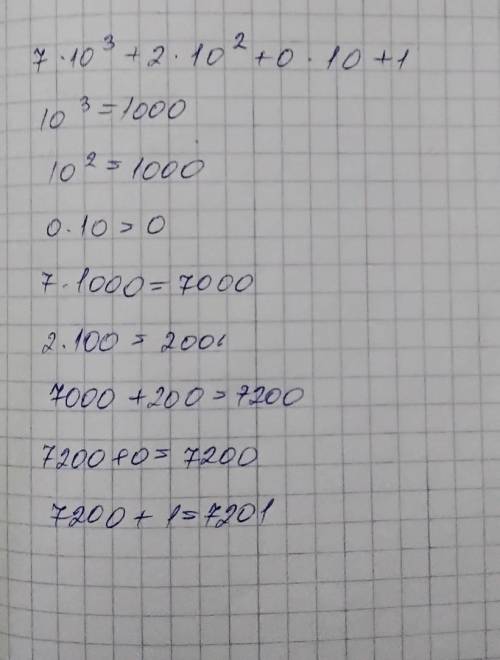 7·10³+2·10²+0·10+1
10³=1000
10²=1000
0·10=0
7·1000=7000
2·100=200
7000+200=7200
7200+0=7200
7200+1=7201